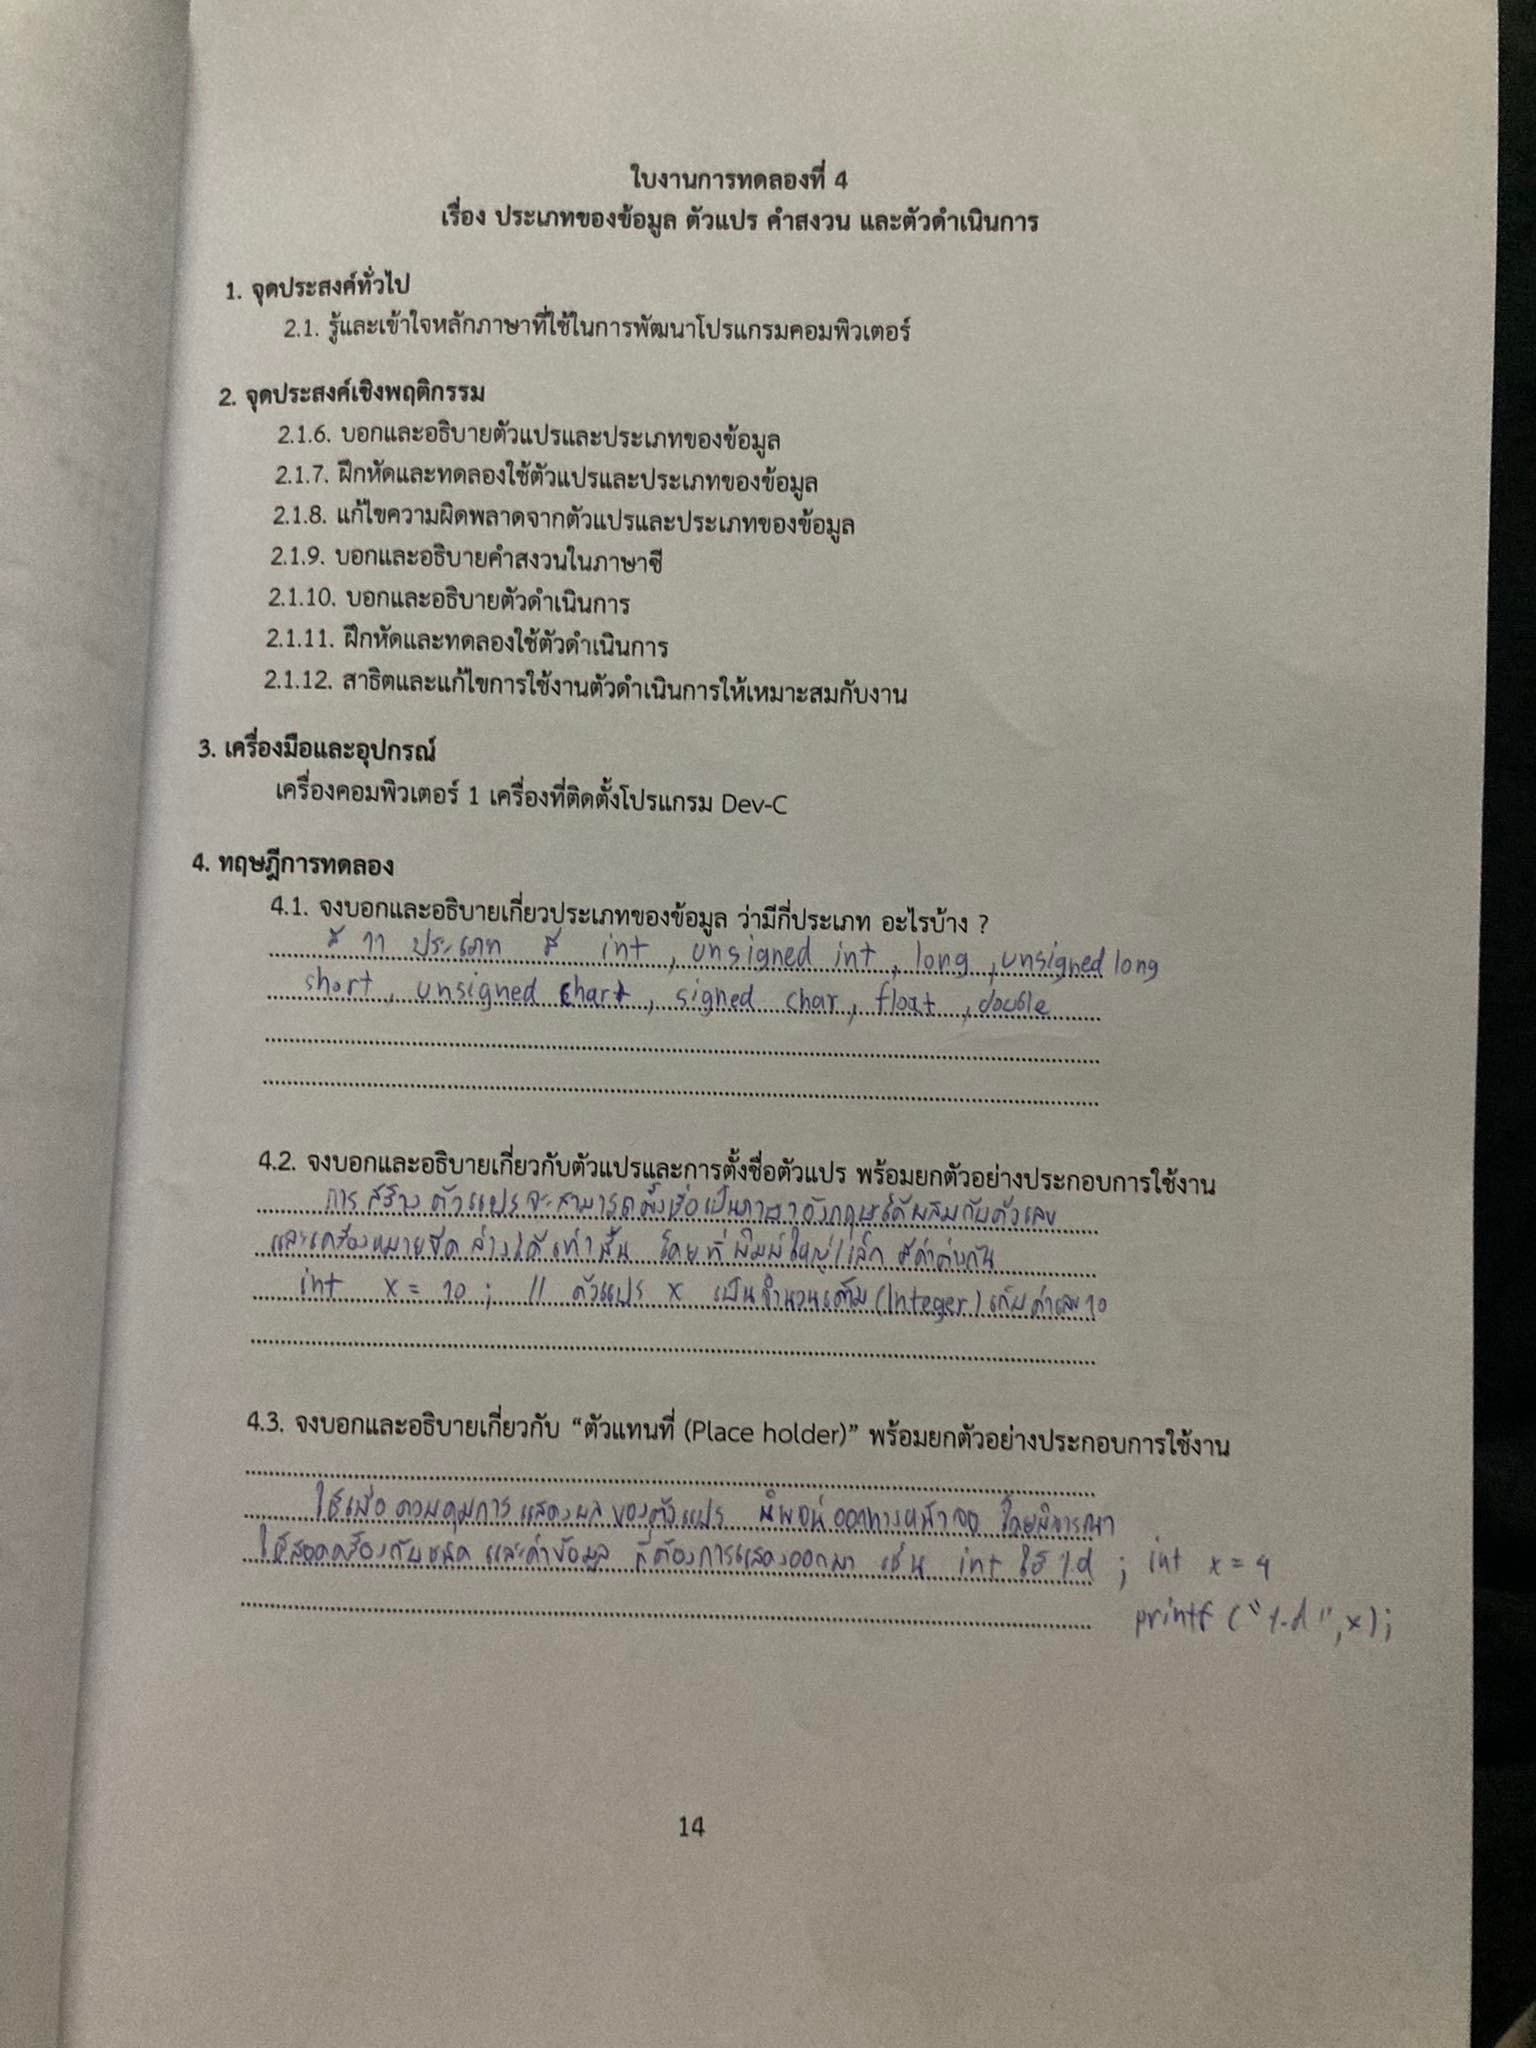 ใบงานการทดลองที่ 4
เรื่อง ประเภทของข้อมูล ตัวแปร คำสงวน และตัวดำเนินการ
1. จุดประสงค์ทั่วไป
2.1. รู้และเข้าใจหลักภาษาที่ใช้ในการพัฒนาโปรแกรมคอมพิวเตอร์
2. จุดประสงค์เชิงพฤติกรรม
2.1.6. บอกและอธิบายตัวแปรและประเภทของข้อมูล
2.1.7. ฝึกหัดและทดลองใช้ตัวแปรและประเภทของข้อมูล
2.1.8. แก้ไขความผิดพลาดจากตัวแปรและประเภทของข้อมูล
2.1.9. บอกและอธิบายคำสงวนในภาษาซี
2.1.10. บอกและอธิบายตัวดำเนินการ
2.1.11. ฝึกหัดและทดลองใช้ตัวดำเนินการ
2.1.12. สาธิตและแก้ไขการใช้งานตัวดำเนินการให้เหมาะสมกับงาน
3. เครื่องมือและอุปกรณ์
เครื่องคอมพิวเตอร์ 1 เครื่องที่ติดตั้งโปรแกรม Dev-C
4. ทฤษฎีการทดลอง
4.1. จงบอกและอธิบายเกี่ยวประเภทของข้อมูล ว่ามีกี่ประเภท อะไรบ้าง ?
มี 11 ประเภท มี int , unsigned int , long , unsigned long
short , unsigned chart , signed char , float , double
4.2. จงบอกและอธิบายเกี่ยวกับตัวแปรและการตั้งชื่อตัวแปร พร้อมยกตัวอย่างประกอบการใช้งาน
การสร้างตัวแปรจะสามารถตั้งชื่อเป็นภาษาอังกฤษได้ผสมกับตัวเลข
และเครื่องหมายขีดล่างได้เท่านั้น โดยที่พิมพ์ใหญ่/เล็ก มีค่าต่างกัน
int x = 10 ; // ตัวแปร x เป็นจำนวนเต็ม (Integer) เก็บค่าเลข 10
4.3. จงบอกและอธิบายเกี่ยวกับ “ตัวแทนที่ (Place holder)” พร้อมยกตัวอย่างประกอบการใช้งาน
ใช้เพื่อควบคุมการแสดงผลของตัวแปร ออกทางหน้าจอ โดยพิจารณา
ให้สอดคล้องกับชนิด และค่าข้อมูล ที่ต้องการแสดงออกมา เช่น int ใช้ %d ; int x = 4
printf ("%d", x);
14